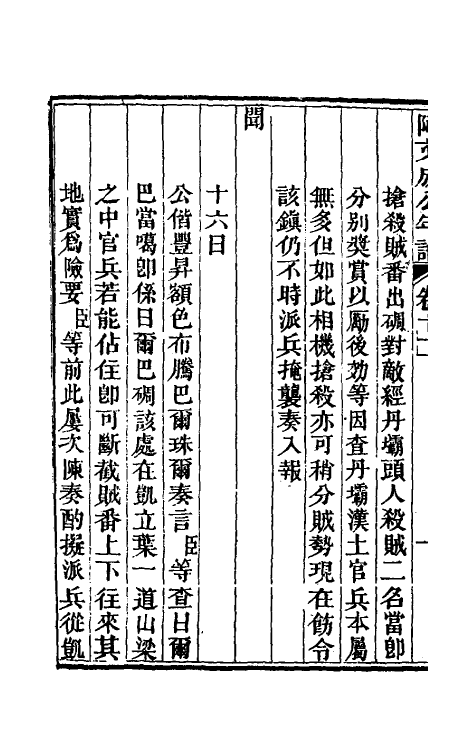 搶殺賊番出碉對敵經丹壩頭人殺賊二名當卽
分別獎賞以勵後効等因查丹壩漢土官兵本屬
無多但如此相機搶殺亦可稍分賊勢現在飭令
該鎮仍不時派兵掩襲奏入報
聞
十六日
公偕豐昇額色布騰巴爾珠爾奏言臣等查日爾
巴當噶卽係日爾巴碉該處在凱立葉一道山梁
之中官兵若能佔住卽可斷截賊番上下往來其
地實爲險要臣等前此屢次陳奏酌擬派兵從凱